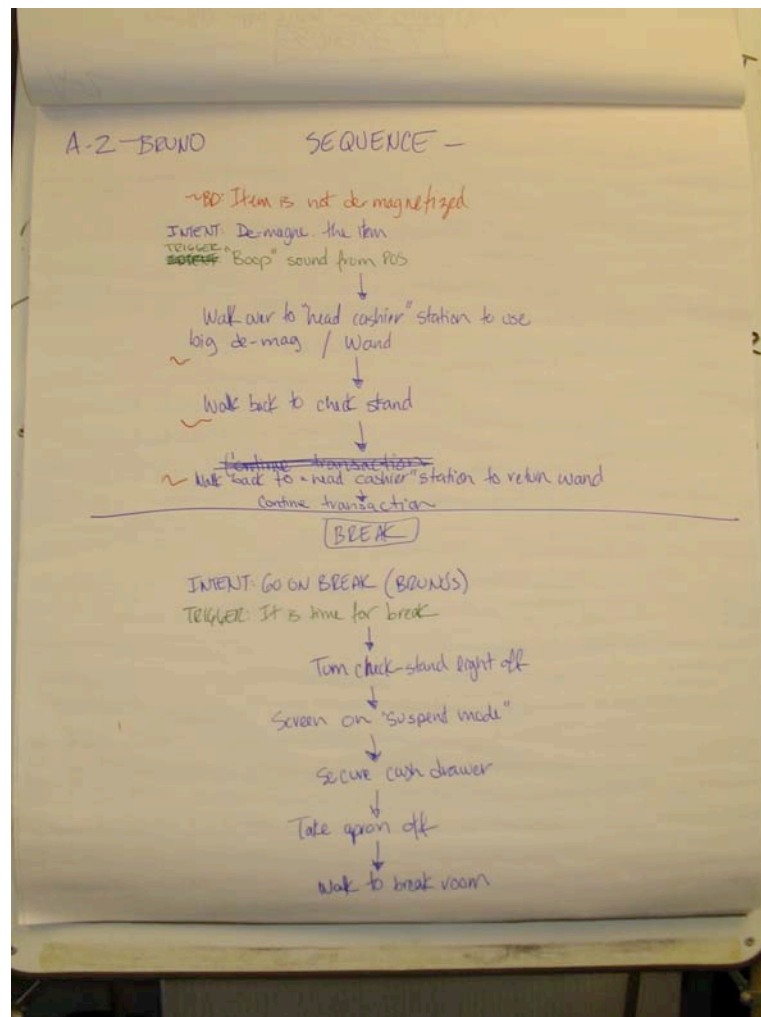 A-2-BRUNO SEQUENCE -
~BD: Item is not de magnetized
INTENT: De-magne. the item
TRIGGER: "Boop" sound from POS
Walk over to "head cashier" station to use
big de-mag / Wand
Walk back to check stand
Continue transaction
Walk back to "head cashier" station to return wand
Contine transaction
BREAK
INTENT: GO ON BREAK (BRUNO'S)
TRIGGER: It is time for break
Turn check-stand light off
Screen on "suspend mode"
Secure cash drawer
Take apron off
Walk to break room